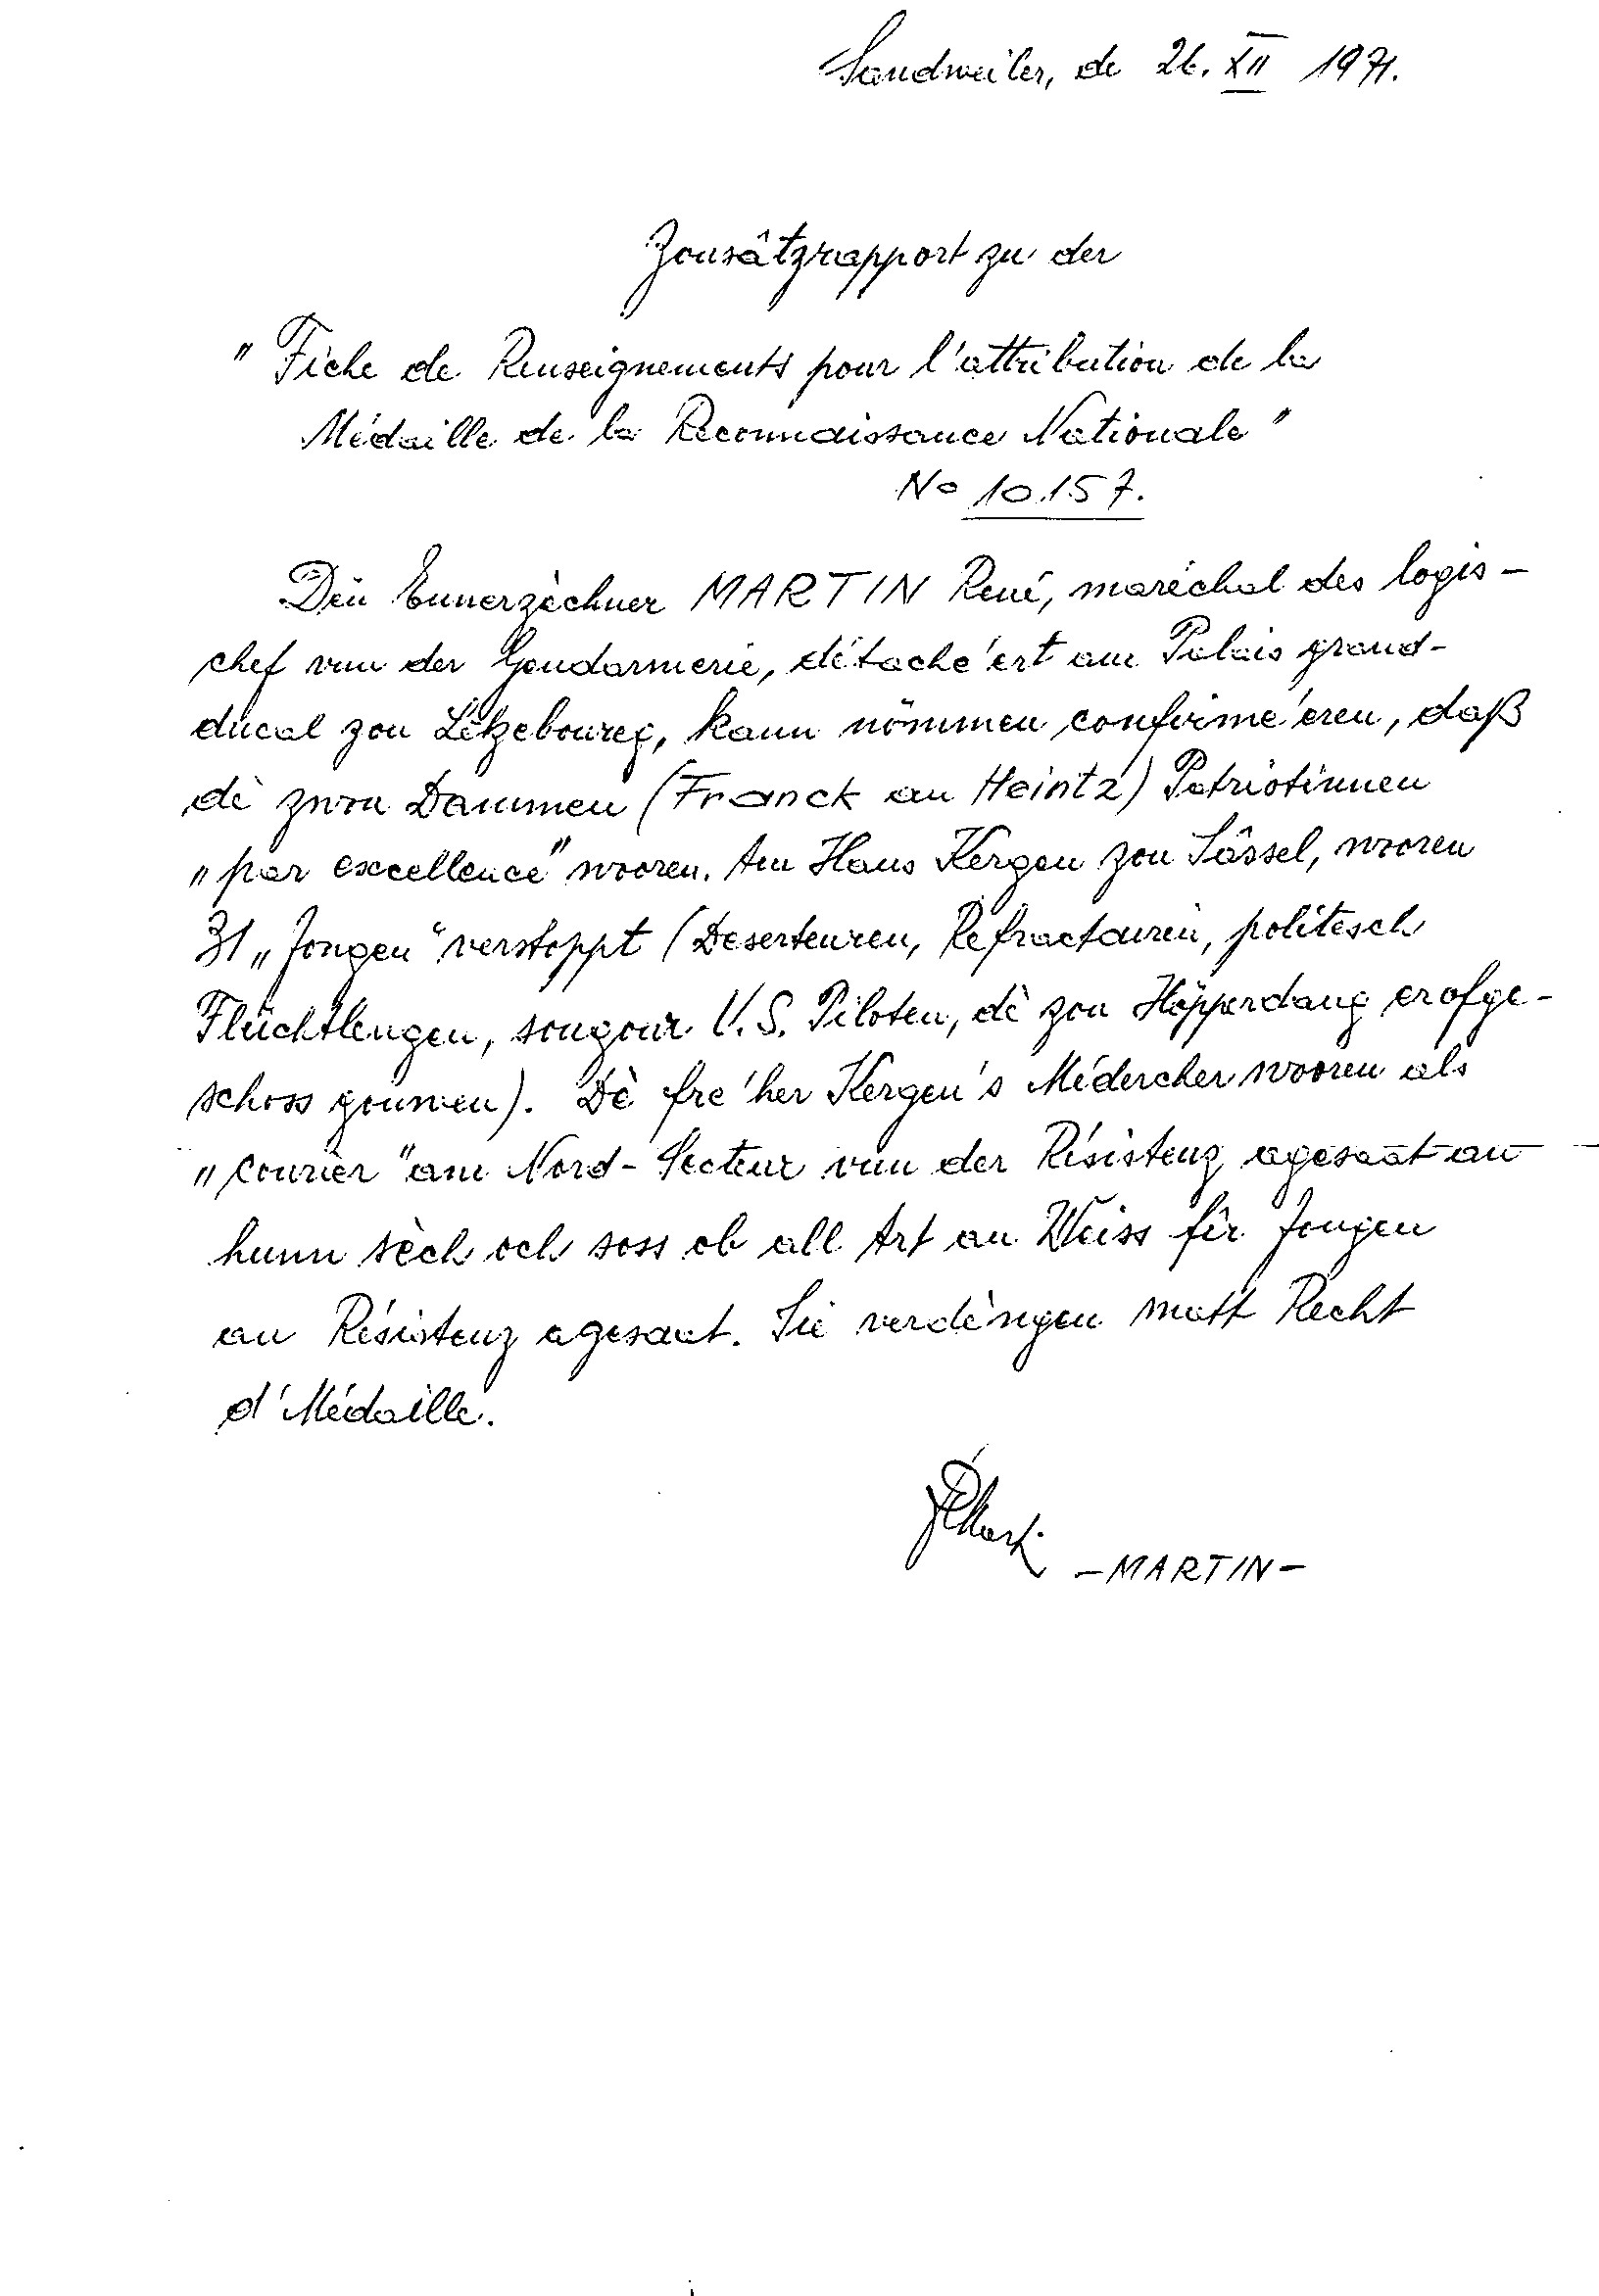 Sandweiler, de 26. XII 1971.
Zousâtzrapport zu der
" Fiche de Renseignements pour l'attribution de la
Médaille de la Reconnaissance Nationale"
No 10.157.
Dén Ennerzèchner MARTIN René, maréchal des logis-
chef vun der Gendarmerie, détaché'ert am Palais grand-
ducal zou Lëtzebourg, kann nömmen confirmé'eren, daß
dè zwou Dammen (Franck an Heintz) Patriotinnen
„par excellence" wooren. Am Haus Kergen zou Sâssel, wooren
31 „Jongen" verstoppt (Deserteuren, Refractairen, politesch
Flüchtlengen, sougour U.S. Piloten, dè zou Höpperdang erofge-
schoss gouwen). Dè fre'her Kergen's Médercher wooren als
„courier" am Nord-Secteur vun der Résistenz agesaat an
hunn sèch och soss ob all Art an Weiss fir Jongen
an Résistenz agesaat. Sie verdèngen matt Recht
d'Médaille.
-MARTIN-